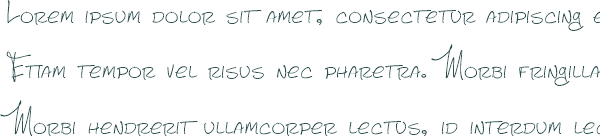 Lorem ipsum dolor sit amet, consectetur adipiscing e
Etiam tempor vel risus nec pharetra. Morbi fringilla
Morbi hendrerit ullamcorper lectus, id interdum lec